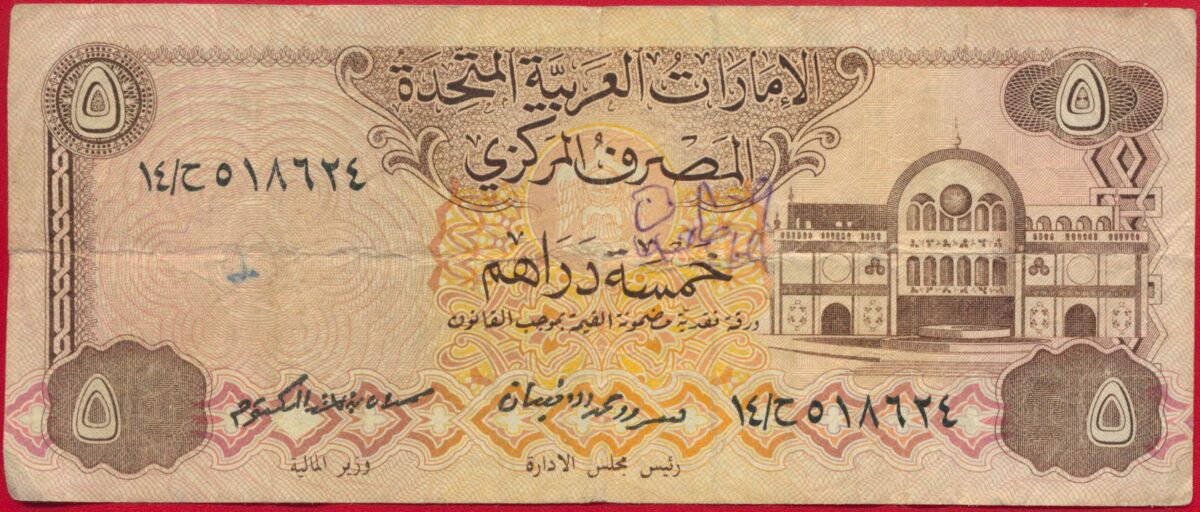 ٥
٥
الإمَارَاتُ العَرَبِيَّة المتَّحِدَة
المَصْرفُ المركَزي
١٤/ح ٥١٨٦٢٤
خَمْسَة دَرَاهم
ورقة نقدية مضمونة القيمة بموجب القانون
١٤/ح ٥١٨٦٢٤
رئيس مجلس الادارة
وزير المالية
٥
٥